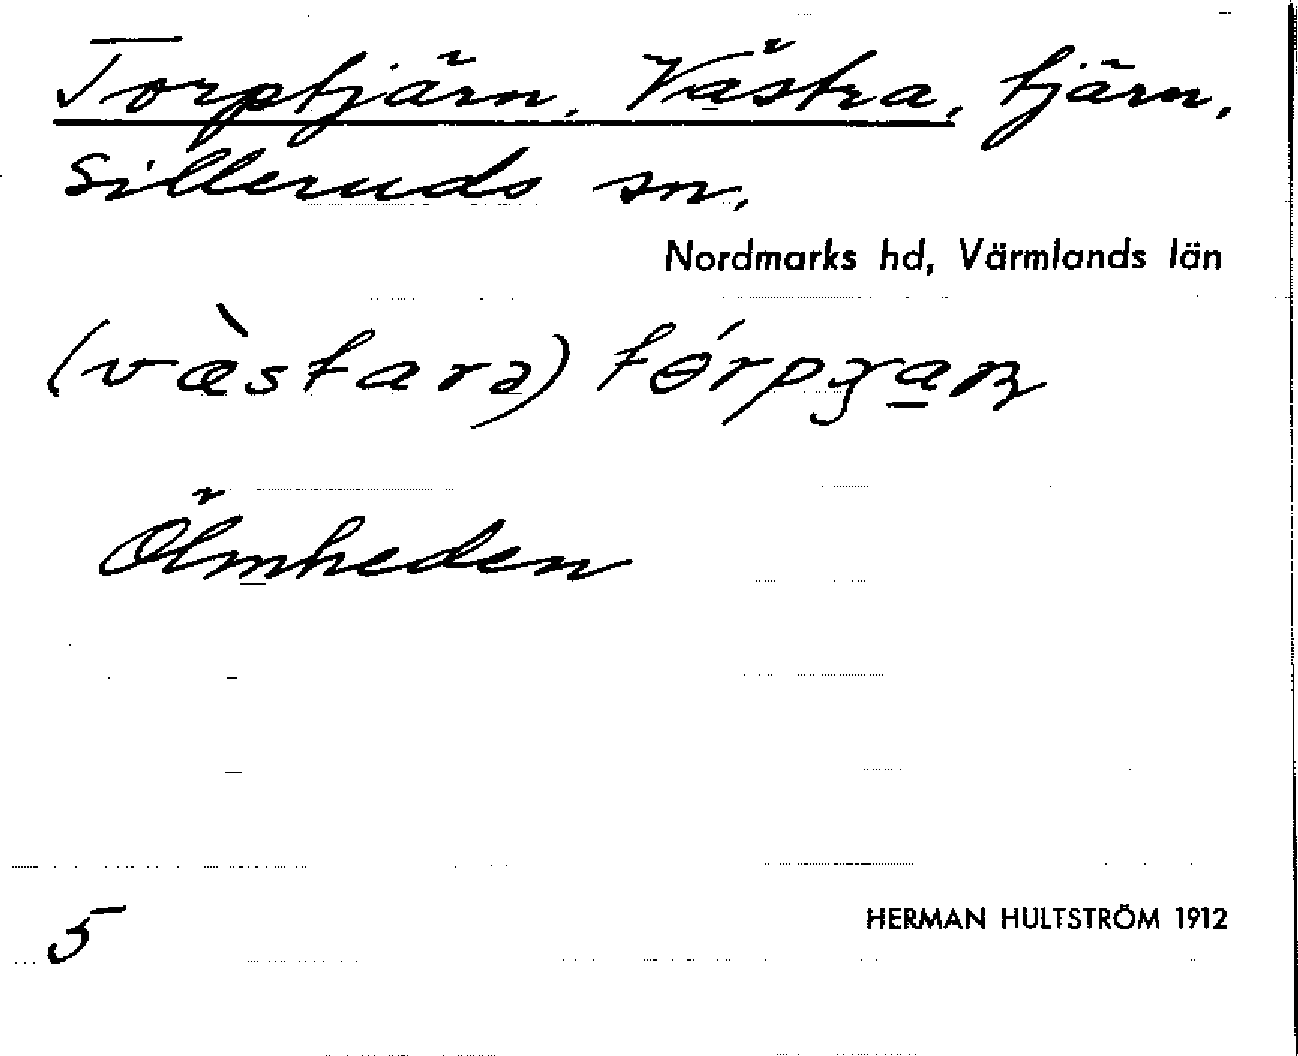 Torptjärn, Västra, tjärn,
Silleruds sn,
Nordmarks hd, Värmlands län
(væ̀starə) tɵ́rpɣa̱ɴ
Ölmheden
5
HERMAN HULTSTRÖM 1912